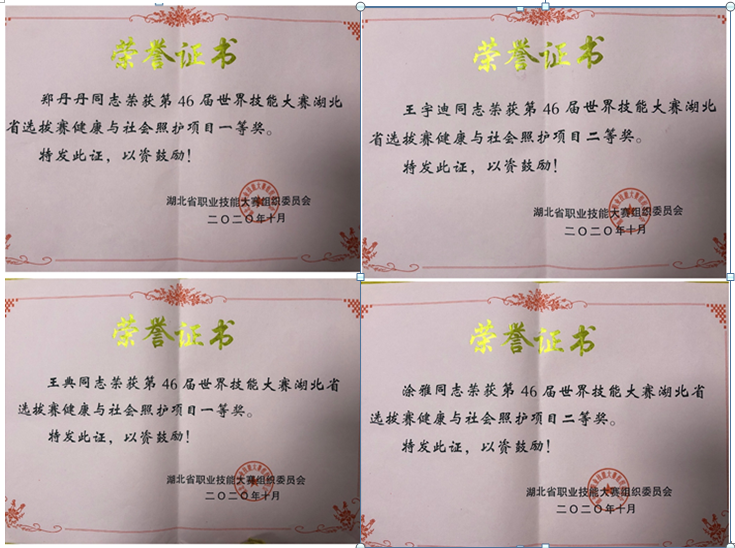 荣誉证书
郑丹丹同志荣获第46届世界技能大赛湖北
省选拔赛健康与社会照护项目一等奖。
特发此证，以资鼓励！
湖北省职业技能大赛组织委员会
二〇二〇年十月
荣誉证书
王宇迪同志荣获第46届世界技能大赛湖北
省选拔赛健康与社会照护项目二等奖。
特发此证，以资鼓励！
湖北省职业技能大赛组织委员会
二〇二〇年十月
荣誉证书
王典同志荣获第46届世界技能大赛湖北省
选拔赛健康与社会照护项目一等奖。
特发此证，以资鼓励！
湖北省职业技能大赛组织委员会
二〇二〇年十月
荣誉证书
涂雅同志荣获第46届世界技能大赛湖北省
选拔赛健康与社会照护项目二等奖。
特发此证，以资鼓励！
湖北省职业技能大赛组织委员会
二〇二〇年十月